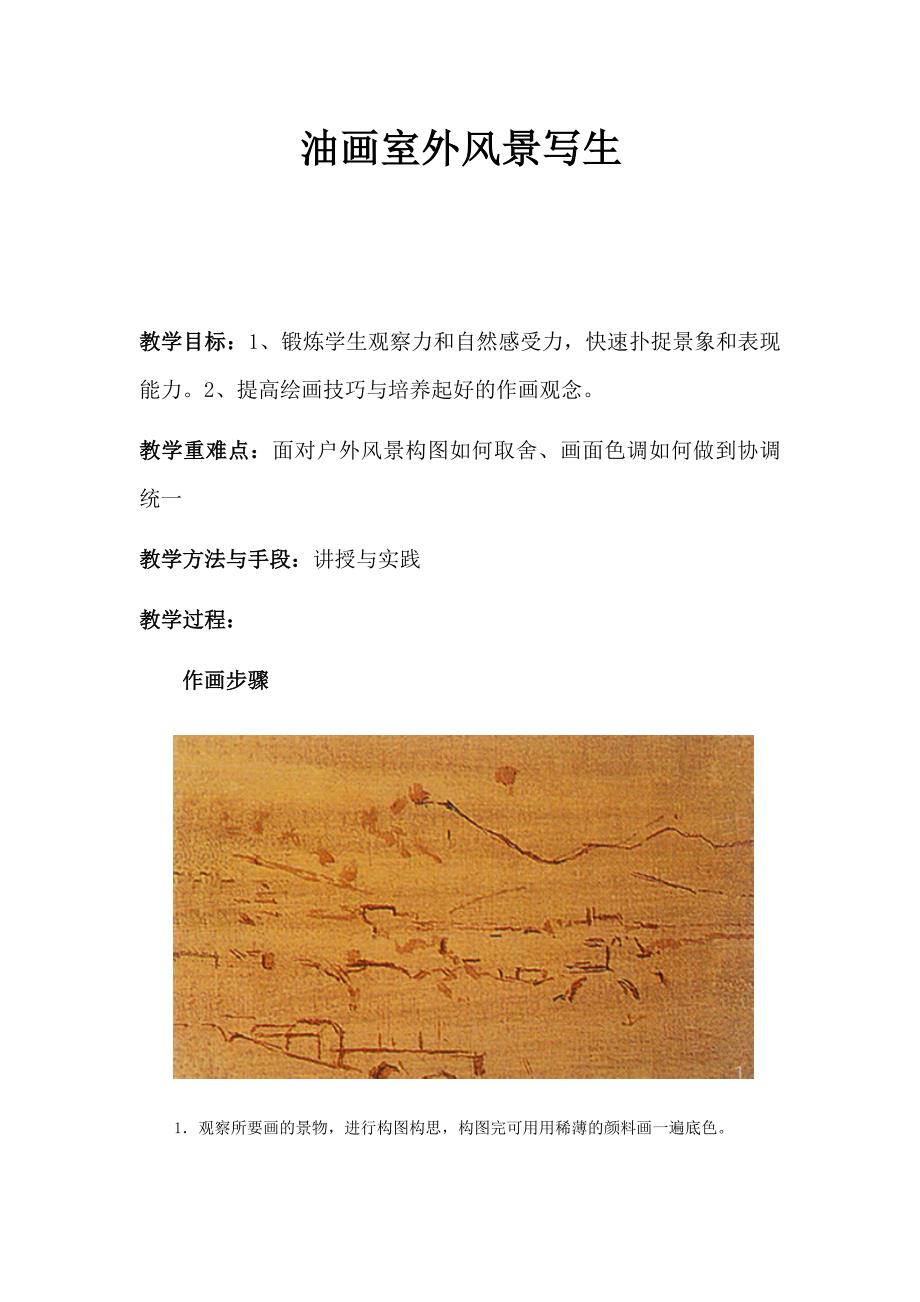 油画室外风景写生
教学目标：1、锻炼学生观察力和自然感受力，快速扑捉景象和表现
能力。2、提高绘画技巧与培养起好的作画观念。
教学重难点：面对户外风景构图如何取舍、画面色调如何做到协调
统一
教学方法与手段：讲授与实践
教学过程：
作画步骤
1
1．观察所要画的景物，进行构图构思，构图完可用用稀薄的颜料画一遍底色。